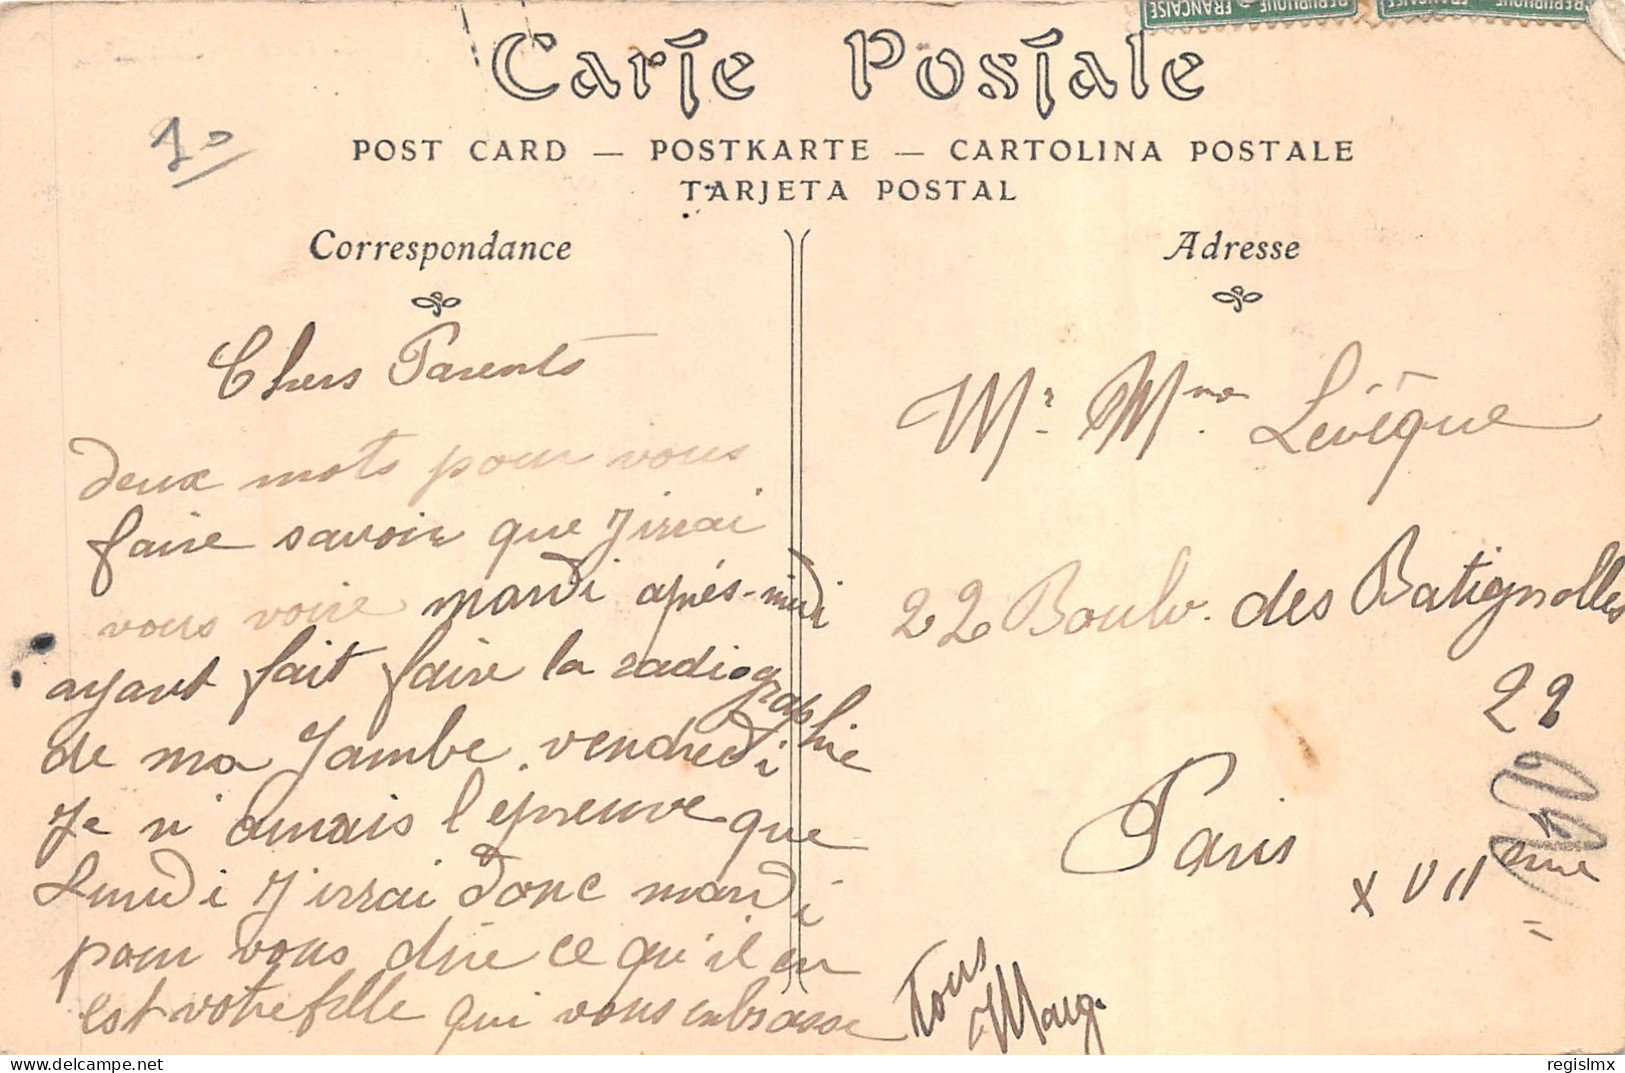 REPUBLIQUE FRANÇAISE
REPUBLIQUE FRANÇAISE
Carte Postale
POST CARD — POSTKARTE — CARTOLINA POSTALE
TARJETA POSTAL
Correspondance
Chers Parents
deux mots pour vous
faire savoir que J'irrai
vous voire mardi après-midi
ayant fait faire la radiographie
de ma Jambe. vendredi
Je n'aurais l'épreuve que
Lundi J'irrai donc mardi
pour vous dire ce qu'il en
est votre fille qui vous embrasse
tous
Marg.
Adresse
Mr. Mme. Levêque
22 Boulv. des Batignolles
22
Paris
XVII ème
delcampe.net
regislmx